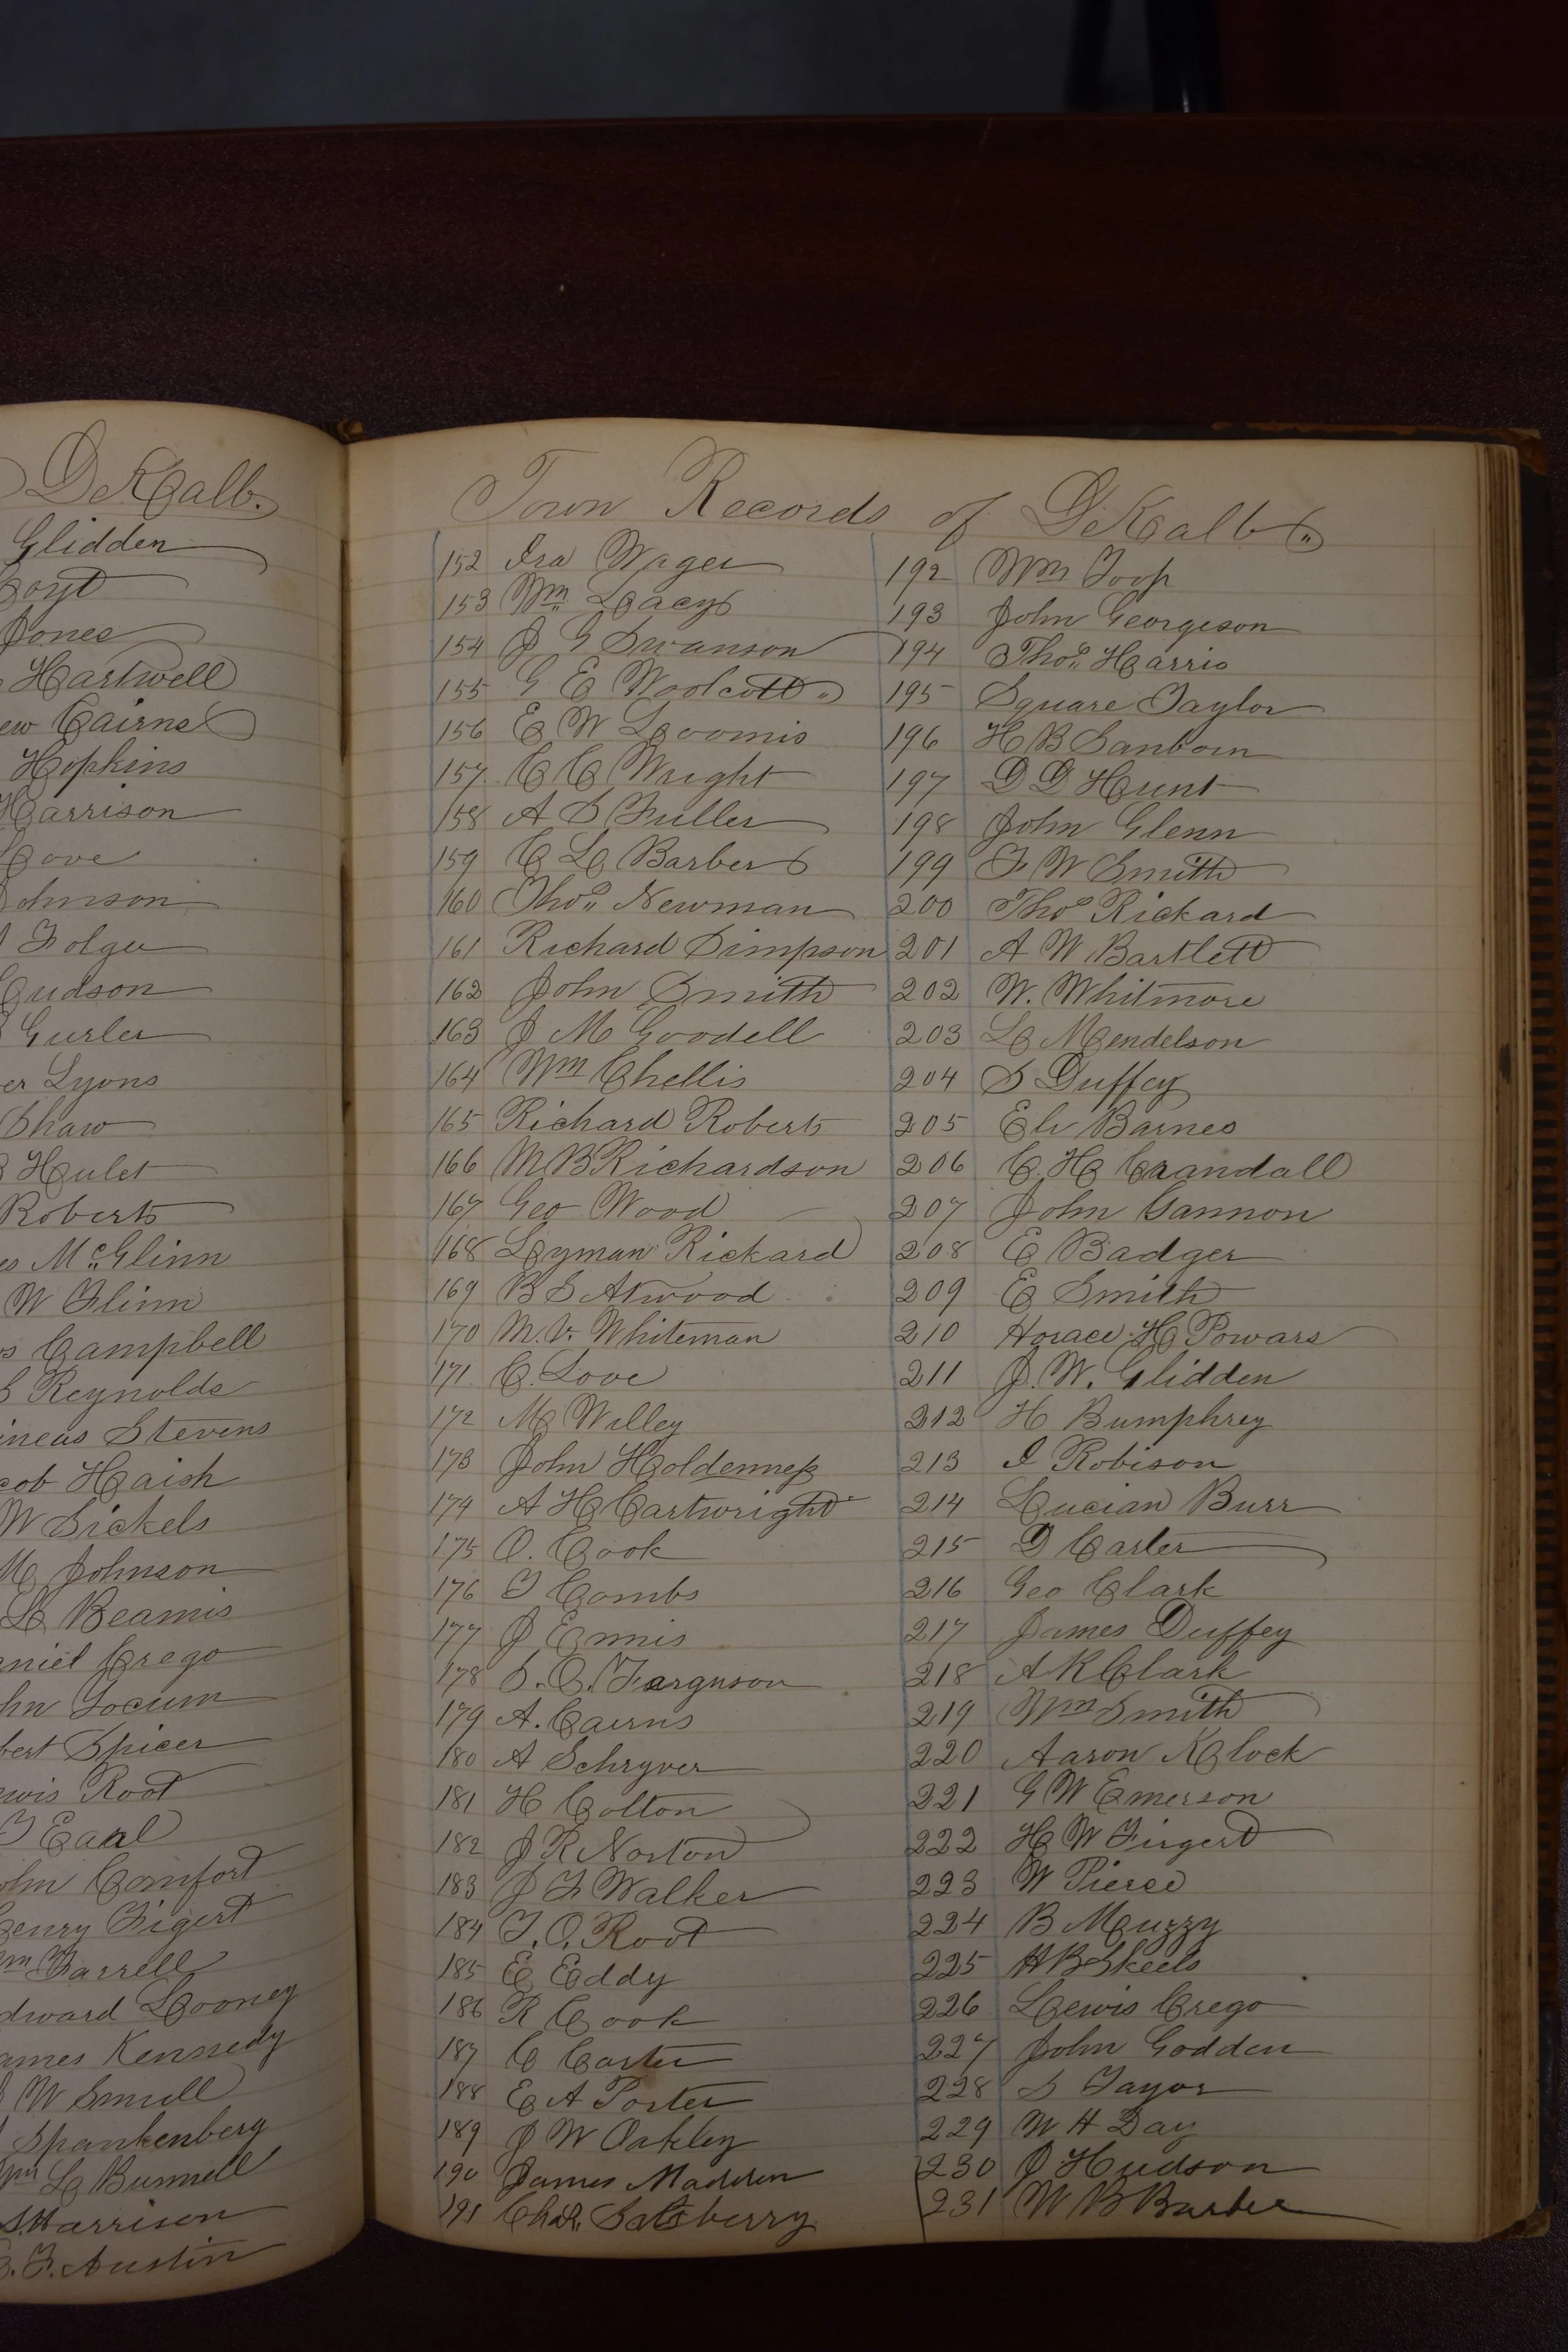 DeKalb.
Glidden
Hoyt
Jones
Hartwell
ew Cairns
Hopkins
Harrison
Love
Johnson
Folger
Hudson
Gurler
er Lyons
Shaw
Hulet
Roberts
es McGlinn
W Flinn
s Campbell
S Reynolds
ineas Stevens
cob Haish
W Sickels
M Johnson
L Beamis
niel Crego
hn Yocum
bert Spicer
ewis Root
Earl
ohn Comfort
Henry Figert
m Farrell
dward Looney
ames Kennedy
W Smull
Spankenberg
Wm L Bunnell
S. Harrison
F. Austin
Town Records of DeKalb
152 Ira Wager
153 Wm Lacy
154 J G Swanson
155 G E Woolcott
156 E W Loomis
157 C C Wright
158 A S Fuller
159 C L Barber
160 Thos Newman
161 Richard Simpson
162 John Smith
163 J M Goodell
164 Wm Chellis
165 Richard Roberts
166 M B Richardson
167 Geo Wood
168 Lyman Rickard
169 B S Atwood
170 M. V. Whiteman
171 C. Love
172 M Willey
173 John Holdenness
174 A H Cartwright
175 O. Cook
176 T Combs
177 J Ennis
178 S. O. Farguson
179 A. Cairns
180 A Schryver
181 H Colton
182 J R Norton
183 J F Walker
184 T. O. Root
185 E Eddy
186 R Cook
187 C Carter
188 E A Porter
189 J W Oakley
190 James Madden
191 Chas Salsberry
192 Wm Toop
193 John Georgeson
194 Thos Harris
195 Square Taylor
196 H B Sanborn
197 D D Hunt
198 John Glenn
199 F W Smith
200 Thos Rickard
201 A W Bartlett
202 W. Whitmore
203 L Mendelson
204 S Duffey
205 Eli Barnes
206 C. H Crandall
207 John Gannon
208 E Badger
209 E Smith
210 Horace H Powars
211 J. W. Glidden
212 H Bumphrey
213 I Robison
214 Lucian Burr
215 D Carter
216 Geo Clark
217 James Duffey
218 A K Clark
219 Wm Smith
220 Aaron Klock
221 G W Emerson
222 H W Firgert
223 W Pierce
224 B Muzzy
225 H B Skeels
226 Lewis Crego
227 John Godden
228 S Tayor
229 W H Day
230 J Hudson
231 W B Barber